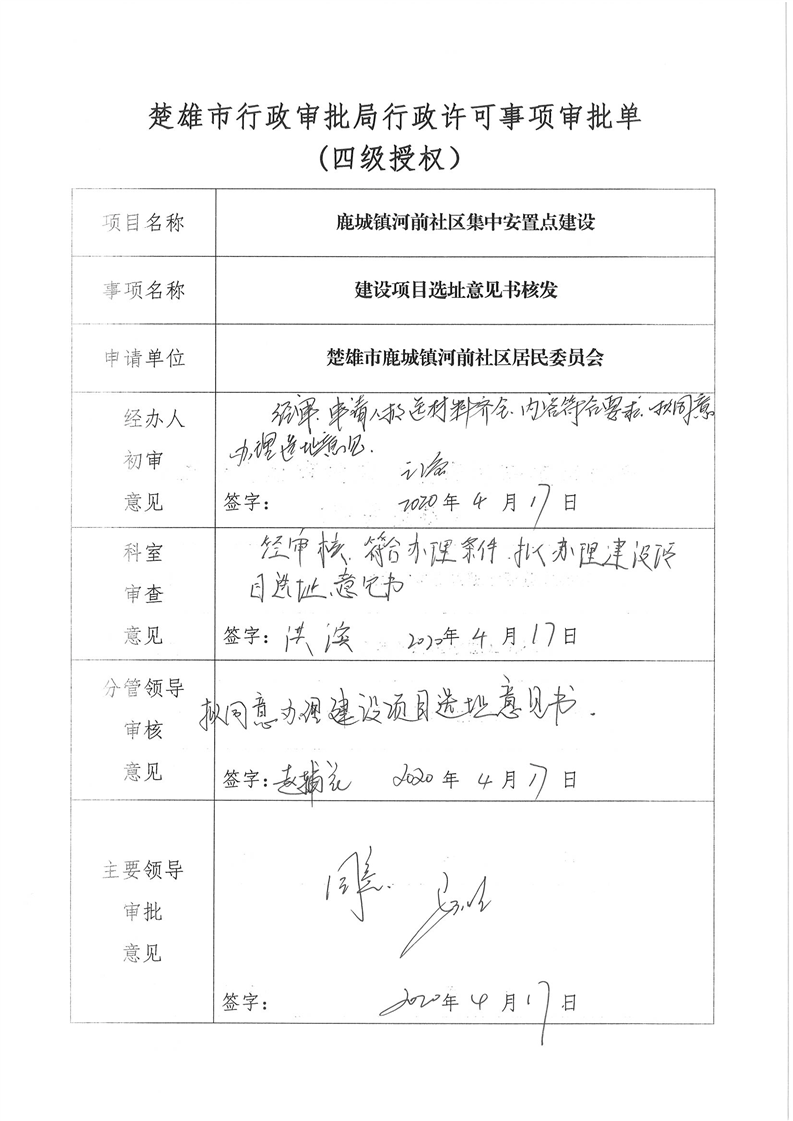 楚雄市行政审批局行政许可事项审批单
(四级授权)
项目名称
鹿城镇河前社区集中安置点建设
事项名称
建设项目选址意见书核发
申请单位
楚雄市鹿城镇河前社区居民委员会
经办人
初审
意见
经审、申请人报送材料齐全、内容符合要求、拟同意
办理选址意见.
签字:
2020年4月17日
科室
审查
意见
经审核、符合办理条件、拟办理建设项
目选址意见书
签字:洪滨 2020年4月17日
分管领导
审核
意见
拟同意办理建设项目选址意见书.
签字:赵辅 2020年4月17日
主要领导
审批
意见
同意.
签字: 2020年4月17日